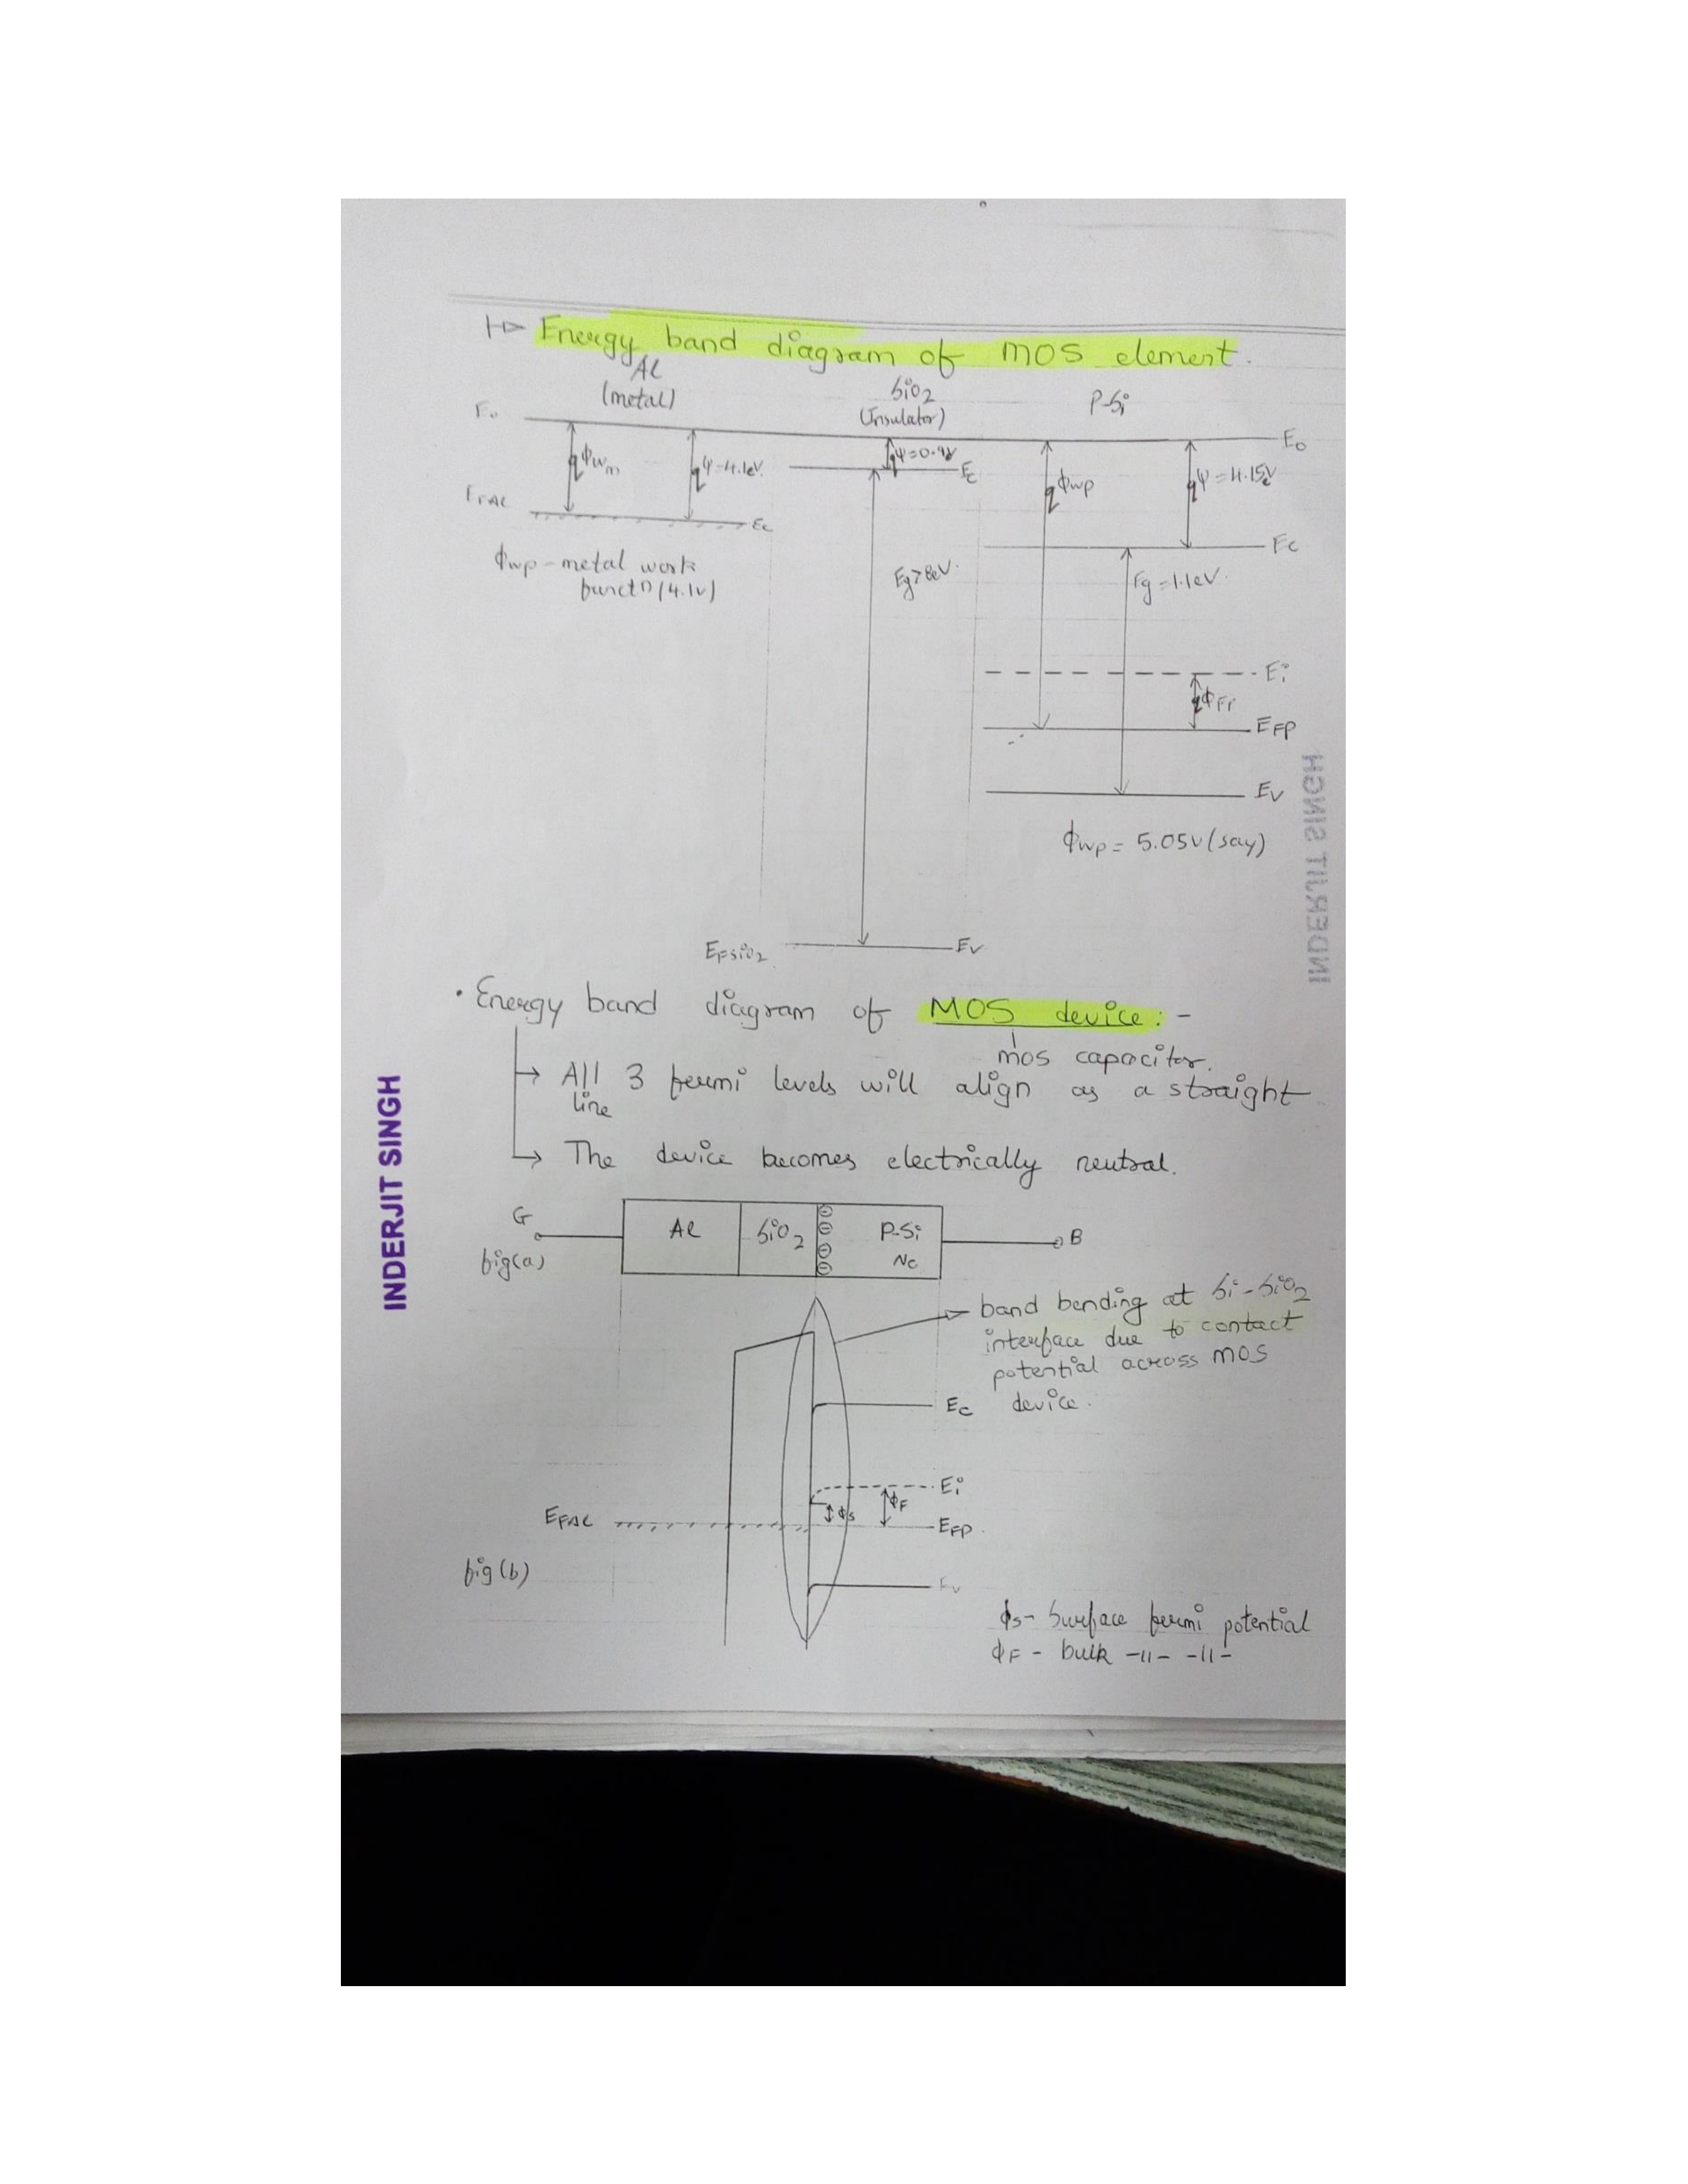 Energy band diagram of MOS element.
Al
(metal)
SiO2
(Insulator)
P-Si
E0
E0
qφWm
qψ=4.1eV
qψ=0.9V
EC
qφwp
qψ=4.15eV
EFAL
Ec
Ec
φwp - metal work
functn (4.1V)
Eg>8eV
Eg=1.1eV
Ei
EFP
EV
φwp = 5.05V (say)
EFSiO2
EV
• Energy band diagram of MOS device: -
mos capacitor.
→ All 3 fermi levels will align as a straight
line
→ The device becomes electrically neutral.
G
Al
SiO2
P-Si
B
fig(a)
band bending at Si-SiO2
interface due to contact
potential across MOS
device.
EC
Ei
φs
φF
EFAL
EFP
fig(b)
Ev
φs - Surface fermi potential
φF - bulk -11- -11-
INDERJIT SINGH
INDERJIT SINGH